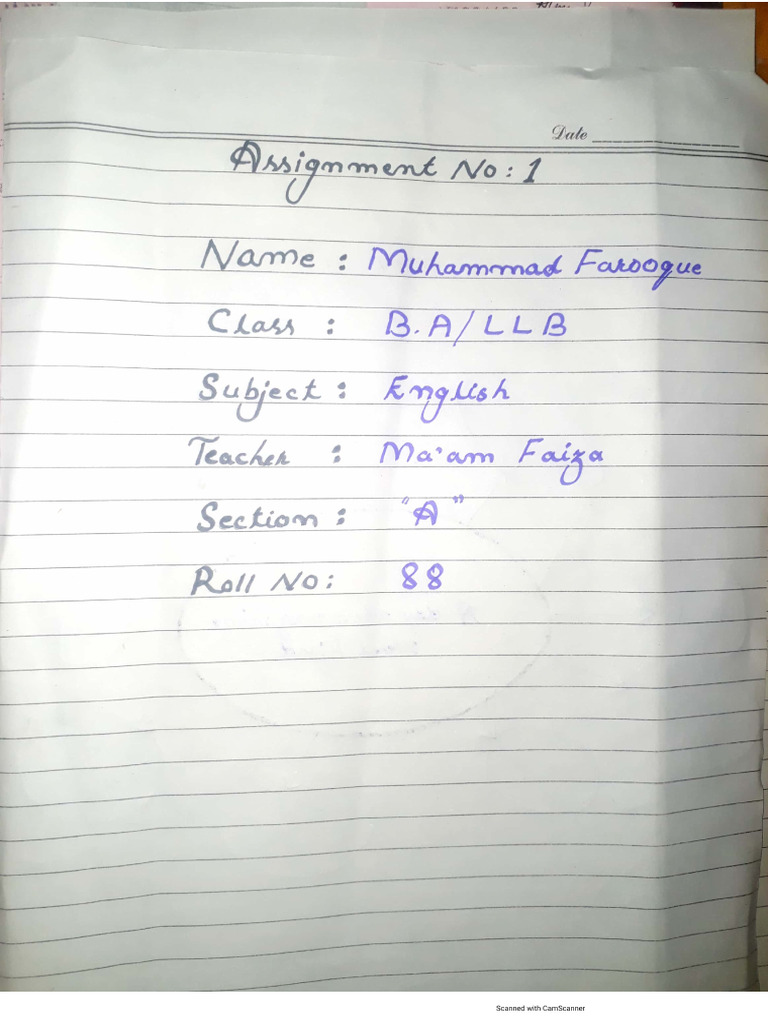 Date
Assignment No: 1
Name : Muhammad Farooque
Class : B.A/LLB
Subject : English
Teacher : Ma'am Faiza
Section : "A"
Roll No: 88
Scanned with CamScanner